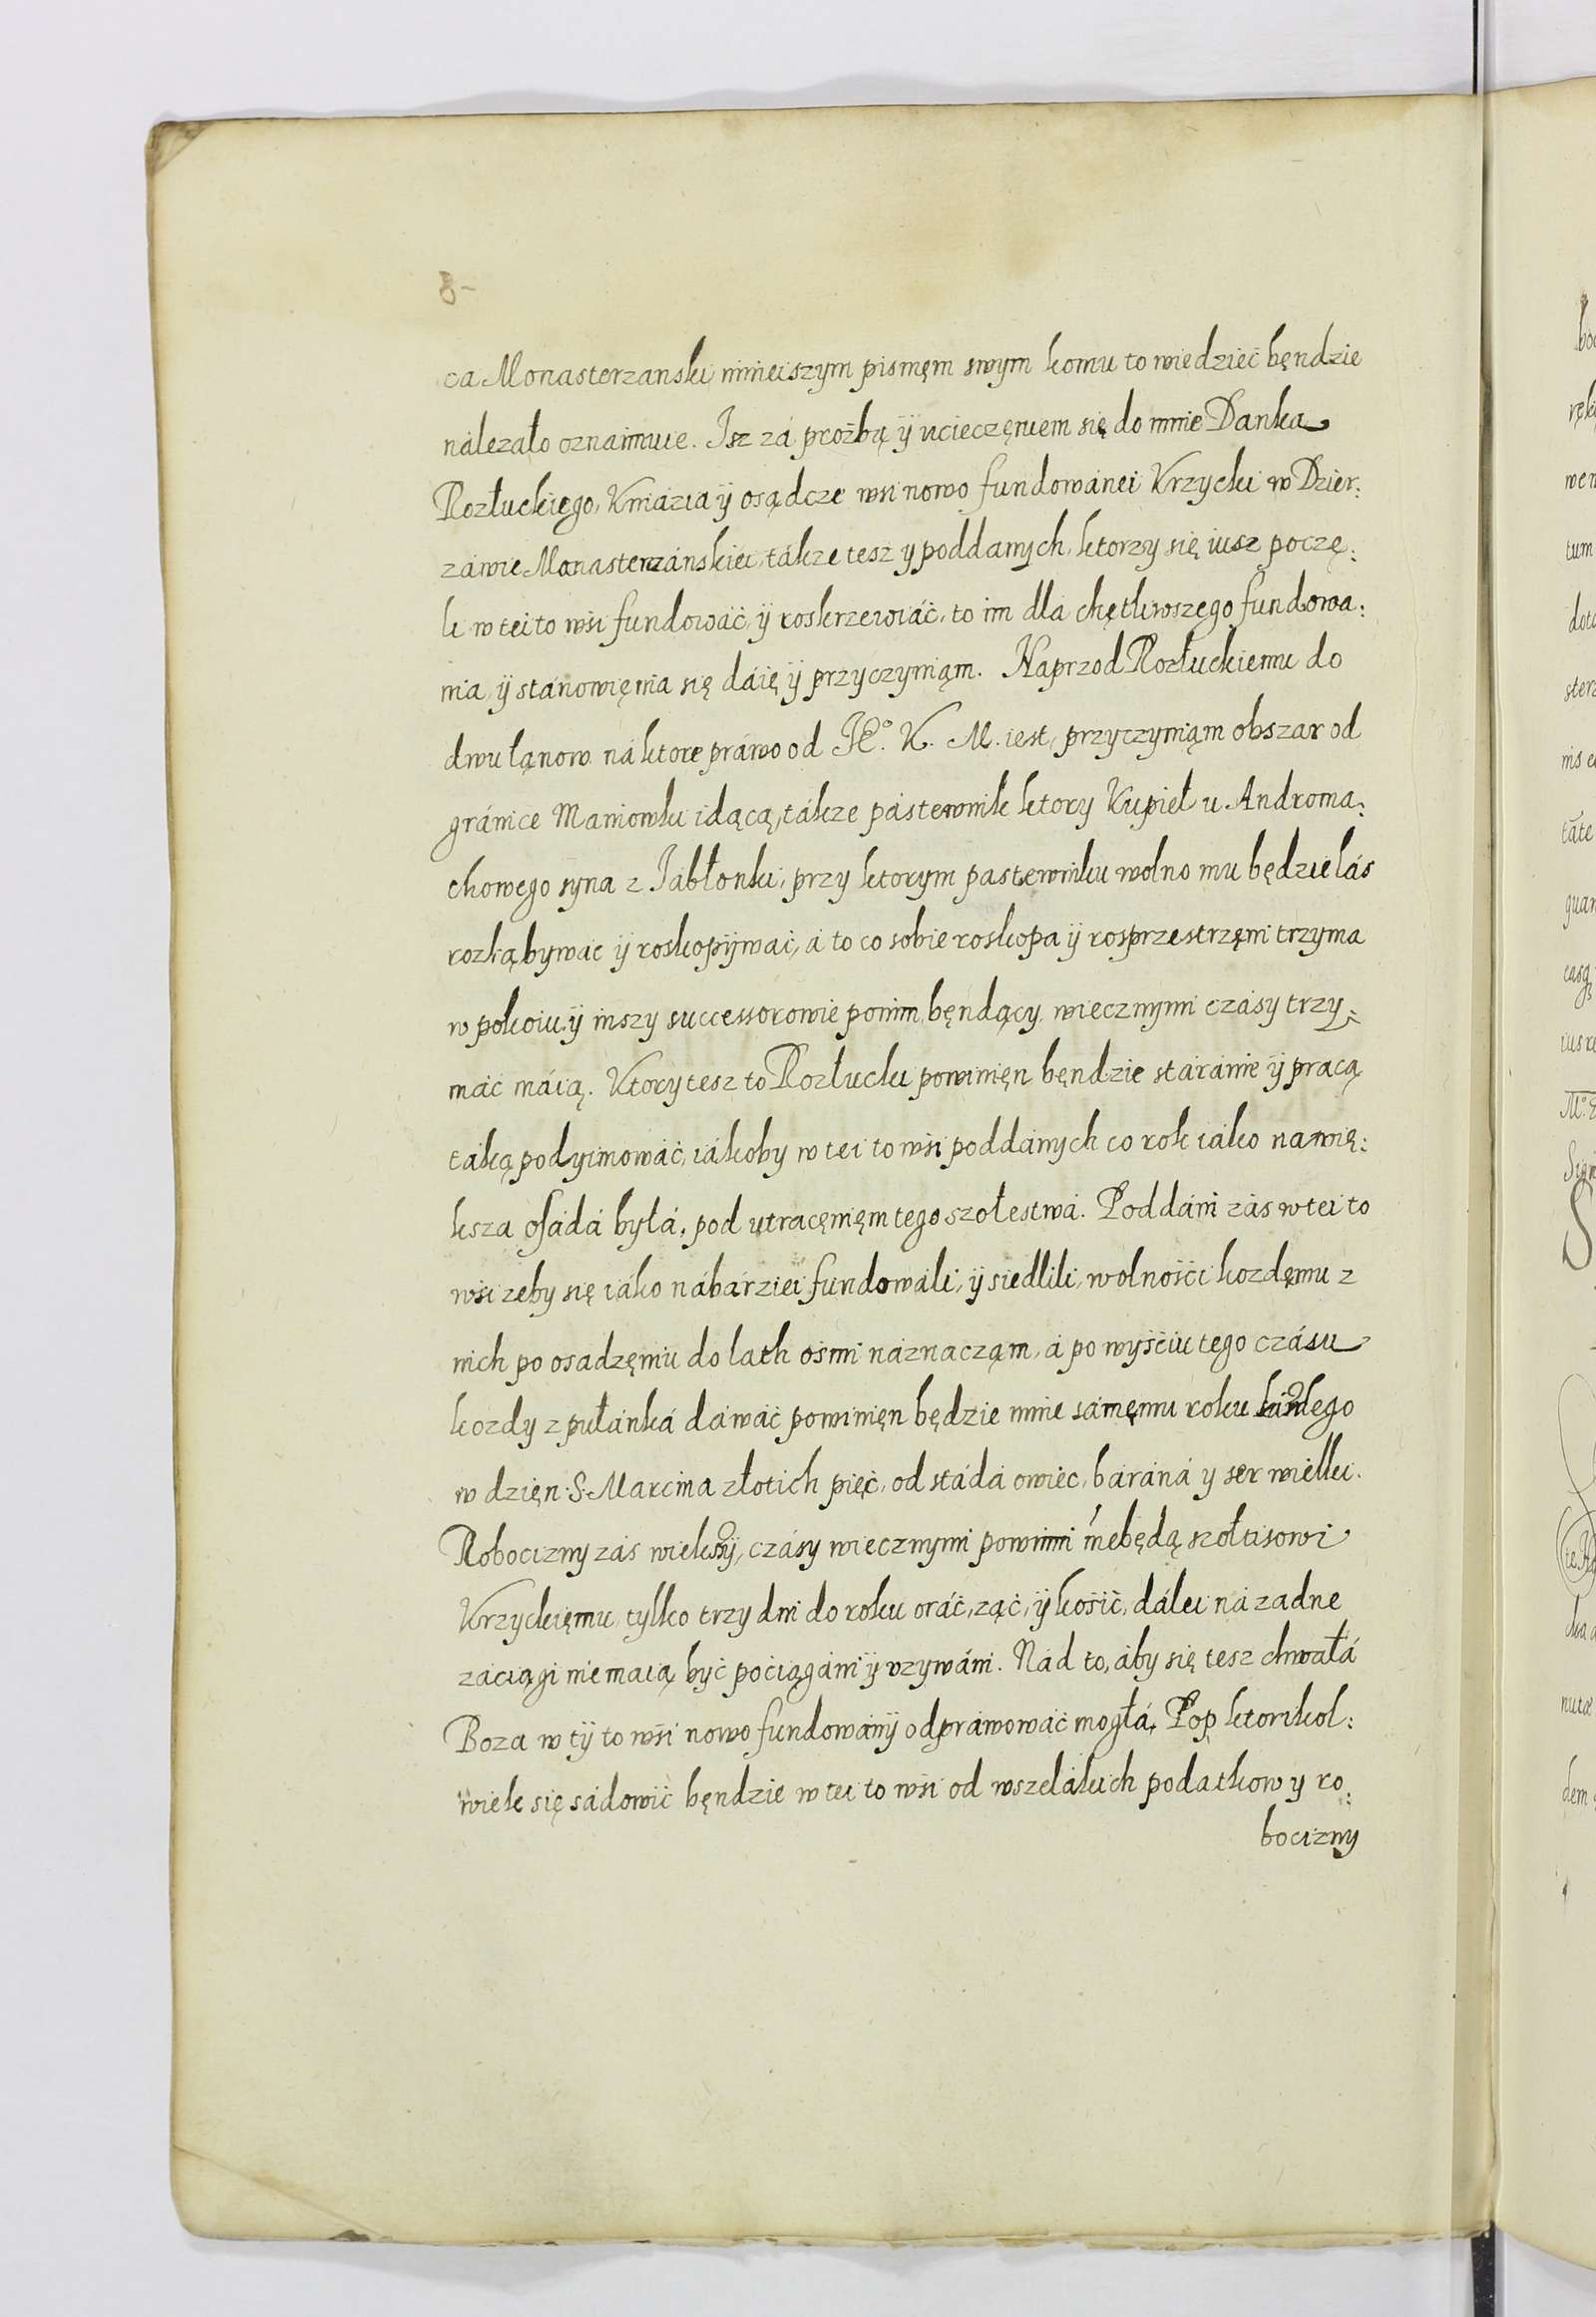 8-
ca Monasterzanski ninieiszym pismęm swym komu to wiedzieć będzie
nálezało oznaimuie. Isz zá proźbą ÿ ucieczęniem się do mnie Danka
Rozłuckiego, Kniazia ÿ osądcze wsi nowo fundowánei Krzycki w Dzier:
záwie Monasterzánskiei, tákze tesz y poddanych, ktorzy się iusz poczę:
li w tei to wśi fundowáć ÿ roskrzewiáć, to im dla chętliwszego fundowa:
nia, ÿ stánowięnia się dáię ÿ przyczyniąm. Naprzod Rozłuckiemu do
dwu łąnow ná ktore práwo od JE°. K. M. iest, przyczyniąm obszar od
gránice Maniowki idącą, tákze pástewnik ktory Kupieł u Androma:
chowego syna z Jabłonki, przy ktorym pastewniku wolno mu będzie lás
rozłąbywac ÿ roskopÿwać, á to co sobie roskopa ÿ rosprzestrzęni trzyma
w pokoiu, ÿ inszy successorowie po nim, bęndący wiecznymi czásy trzy:
máć máią. Ktory tesz to Rozłucki powinięn będzie stáránie ÿ pracą
taką podyimowáć, iákoby w tei to wśi poddánych co rok iako nawię:
ksza osádá byłá, pod utracęnięm tego szołestwá. Poddáni zás w tei to
wśi zeby się iáko nábárziei fundowáli, ÿ siedlili, wolnośći kozdęmu z
nich po osadzęniu do lath ośmi náznacząm, á po wyśćiu tego czásu
kozdy z pułánká dáwáć powinięn będzie mnie sámęmu roku kázdego
w dzięn S. Marcina złotich pięć, od stádá owiec, báráná y ser wielki.
Robocizny zás wiekszÿ, czásy wiecznymi powinni niebędą szołtisowi
Krzyckięmu, tylko trzy dni do roku oráć, ząć, ÿ kośić, dálei ná zadne
záciągi nie maią być pociągáni ÿ uzywáni. Nád to, áby się tesz chwałá
Boza w tÿ to wśi nowo fundowánÿ odpráwowáć mogłá, Pop ktorikol:
wiek się sádowić bęndzie w tei to wśi od wszelákich podatkow y ro:
bocizny